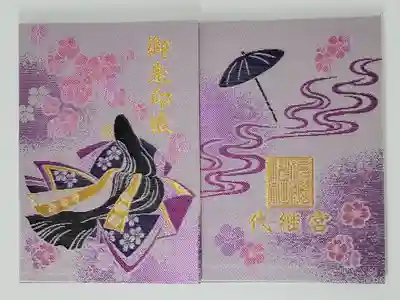 御朱印帳
代継宮